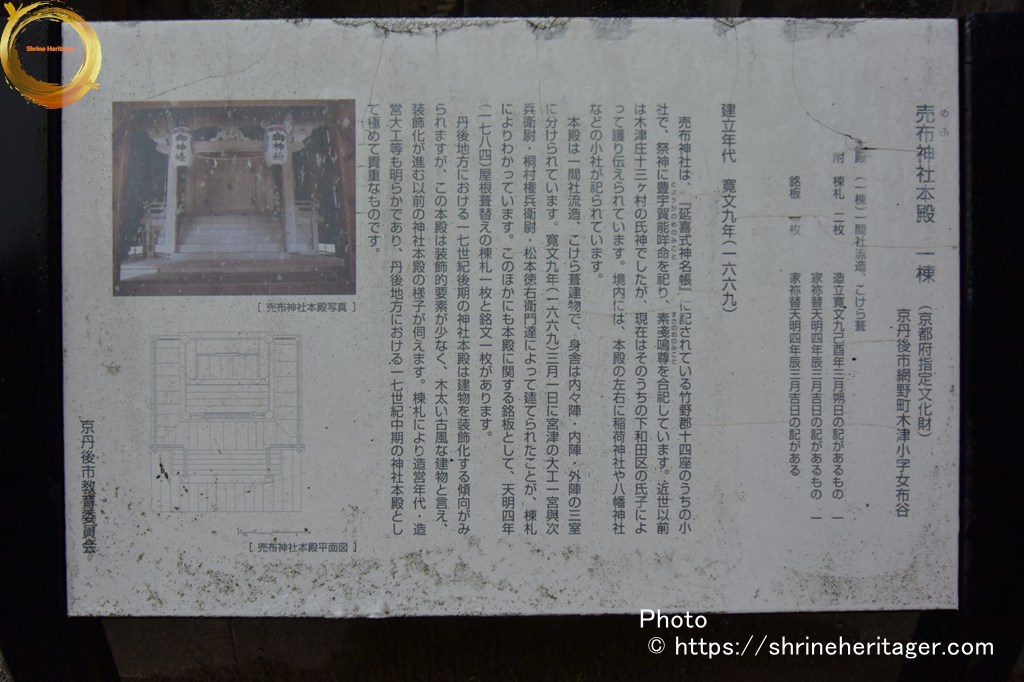 売布神社本殿 一棟 (京都府指定文化財)
めふ
京丹後市網野町木津小字女布谷
本殿 (一棟) 一間社流造、こけら葺
附 棟札 二枚 造立寛文九己酉年三月朔日の記があるもの 一
家祢替天明四年辰三月吉日の記があるもの 一
銘板 一枚 家祢替天明四年辰三月吉日の記がある
建立年代 寛文九年(一六六九)
売布神社は、『延喜式神名帳』に記されている竹野郡十四座のうちの小
社で、祭神に豊宇賀能咩命を祀り、素戔鳴尊を合祀しています。近世以前
とようかのめのみこと
すさのおのみこと
は木津庄十三ヶ村の氏神でしたが、現在はそのうちの下和田区の氏子によ
って護り伝えられています。境内には、本殿の左右に稲荷神社や八幡神社
などの小社が祀られています。
本殿は一間社流造、こけら葺建物で、身舎は内々陣・内陣・外陣の三室
に分けられています。寛文九年(一六六九)三月一日に宮津の大工一宮與次
兵衛尉・桐村権兵衛尉・松本徳右衛門達によって建てられたことが、棟札
によりわかっています。このほかにも本殿に関する銘板として、天明四年
(一七八四)屋根葺替えの棟札一枚と銘文一枚があります。
丹後地方における一七世紀後期の神社本殿は建物を装飾化する傾向がみ
られますが、この本殿は装飾的要素が少なく、木太い古風な建物と言え、
装飾化が進む以前の神社本殿の様子が伺えます。棟札により造営年代、造
営大工等も明らかであり、丹後地方における一七世紀中期の神社本殿とし
て極めて貴重なものです。
御神燈
御神燈
[ 売布神社本殿写真 ]
[ 売布神社本殿平面図 ]
京丹後市教育委員会
Shrine Heritager
Photo
© https://shrineheritager.com